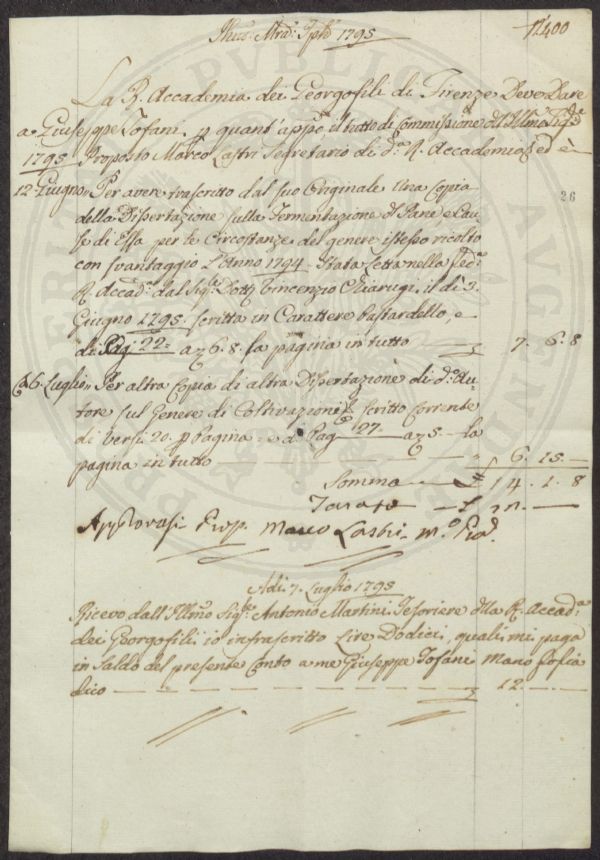 1795
12400
La R. Accademia dei Georgofili di Firenze Deve Dare
a Giuseppe Tofani p quant'app.e il tutto di Commissione dell' Illmo Sig.re
1795 Proposto Marco Lastri Segretario di d.a R. Accademia, ed è
12 Giugno,, Per avere trascritto dal suo Originale Una Copia
della Dissertazione sulla Fermentazione d Pane e Cau-
se di Essa per le Circostanze del genere istesso ricolto
con svantaggio L'Anno 1794. Stata Letta nella sud.a
R. Accad.a dal Sig.re Dott. Vincenzio Chiarugi, il dì 3.
Giugno 1795. scritta in Carattere bastardello, e
di Pag. 22 = a 6. 8. la pagina in tutto 7. 6. 8
26
6. Luglio,, Per altra Copia di altra Dissertazione di d.o Au-
tore sul Genere di Coltivazioni scritto Corrente
di Versi 20. p Pagina e di Pag. 27. a 5. la
pagina in tutto 6. 15.
Somma 14. 1. 8
Tarato 12.
Approvasi Prop. Marco Lastri
Adi 7. Luglio 1795
Ricevo dall'Illmo Sig.re Antonio Martini Tesoriere dlla R. Accad.a
dei Georgofili io infrascritto Lire Dodici, quali mi paga
in Saldo del presente Conto a me Giuseppe Tofani Mano
dico 12.